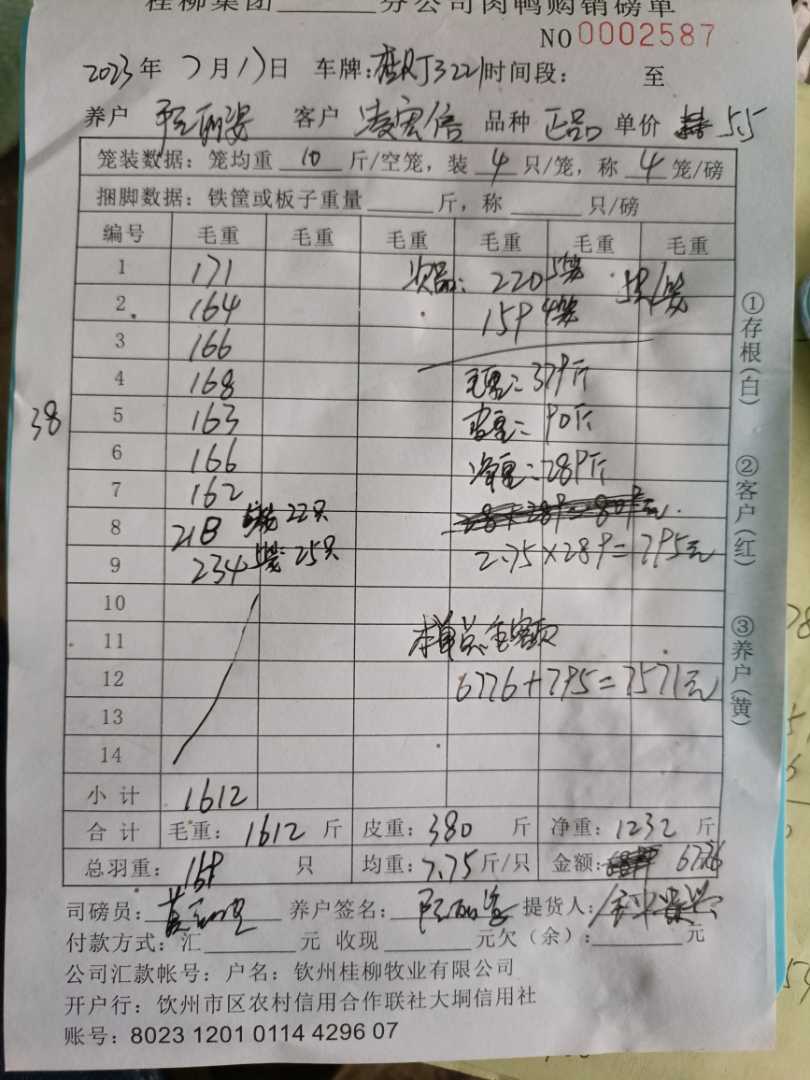 桂柳集团______分公司肉鸭购销磅单
NO 0002587
2023年 7月17日 车牌:桂RJ3221 时间段: 至
养户 客户 凌宏信 品种 正品 单价 5.5
笼装数据: 笼均重 10 斤/空笼, 装 4 只/笼, 称 4 笼/磅
捆脚数据: 铁筐或板子重量______斤, 称______只/磅
编号 毛重 毛重 毛重 毛重 毛重 毛重
1 171 次品: 220 5笼 5只/笼
2 164 159 4笼
3 166
4 168 毛重: 379斤
38 5 163 皮重: 90斤
6 166 净重: 289斤
7 162
8 218 5笼 22只
9 234 5笼 25只 2.75×289=795元
10
11 本单总金额
12 6776+795=7571元
13
14
小计 1612
合计 毛重: 1612 斤 皮重: 380 斤 净重: 1232 斤
总羽重: 159 只 均重: 7.75 斤/只 金额: 6776
司磅员: 养户签名: 提货人:
付款方式: 汇______元 收现______元欠(余):______元
公司汇款帐号: 户名: 钦州桂柳牧业有限公司
开户行: 钦州市区农村信用合作联社大垌信用社
账号: 8023 1201 0114 4296 07
①存根(白) ②客户(红) ③养户(黄)